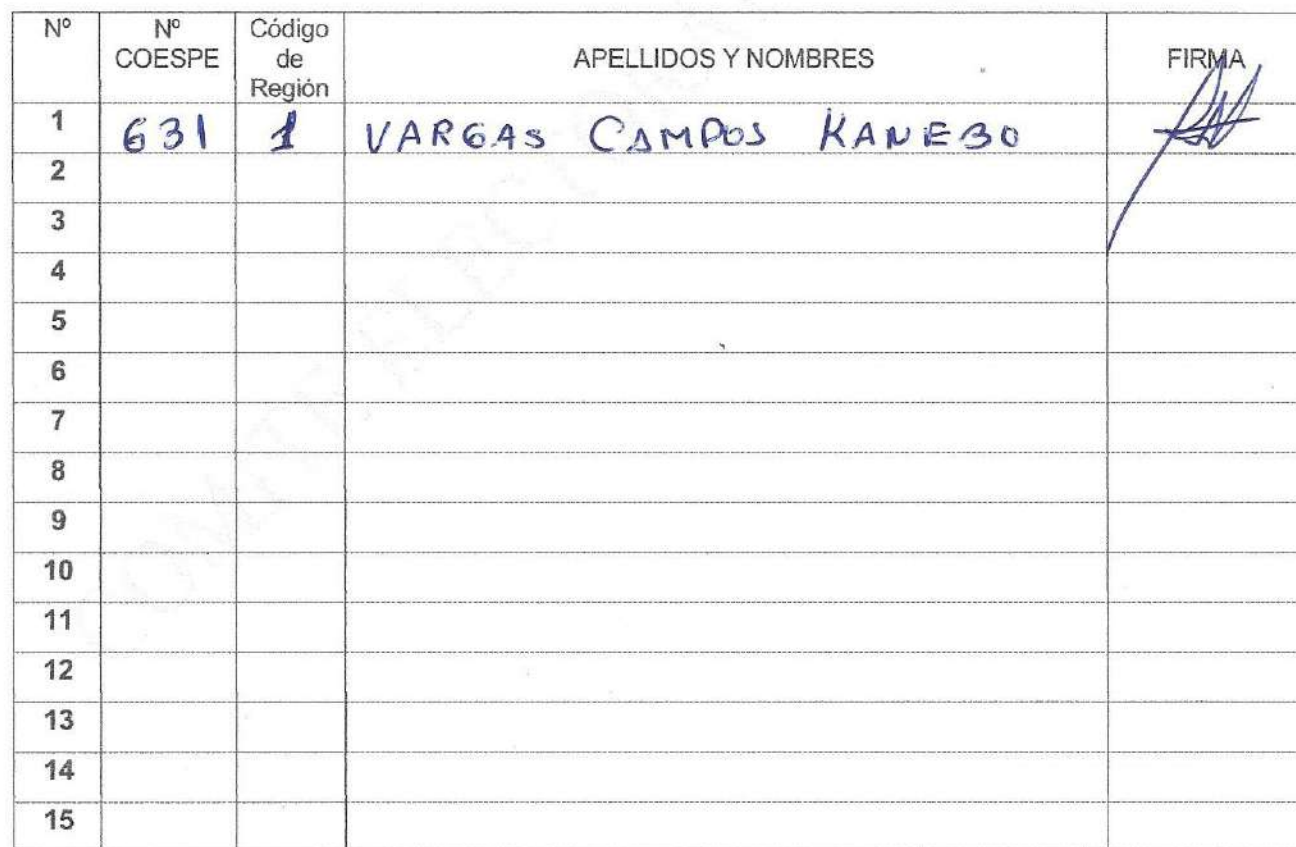 Nº Nº COESPE Código de Región APELLIDOS Y NOMBRES FIRMA
1 631 1 VARGAS CAMPOS KANEBO
2
3
4
5
6
7
8
9
10
11
12
13
14
15